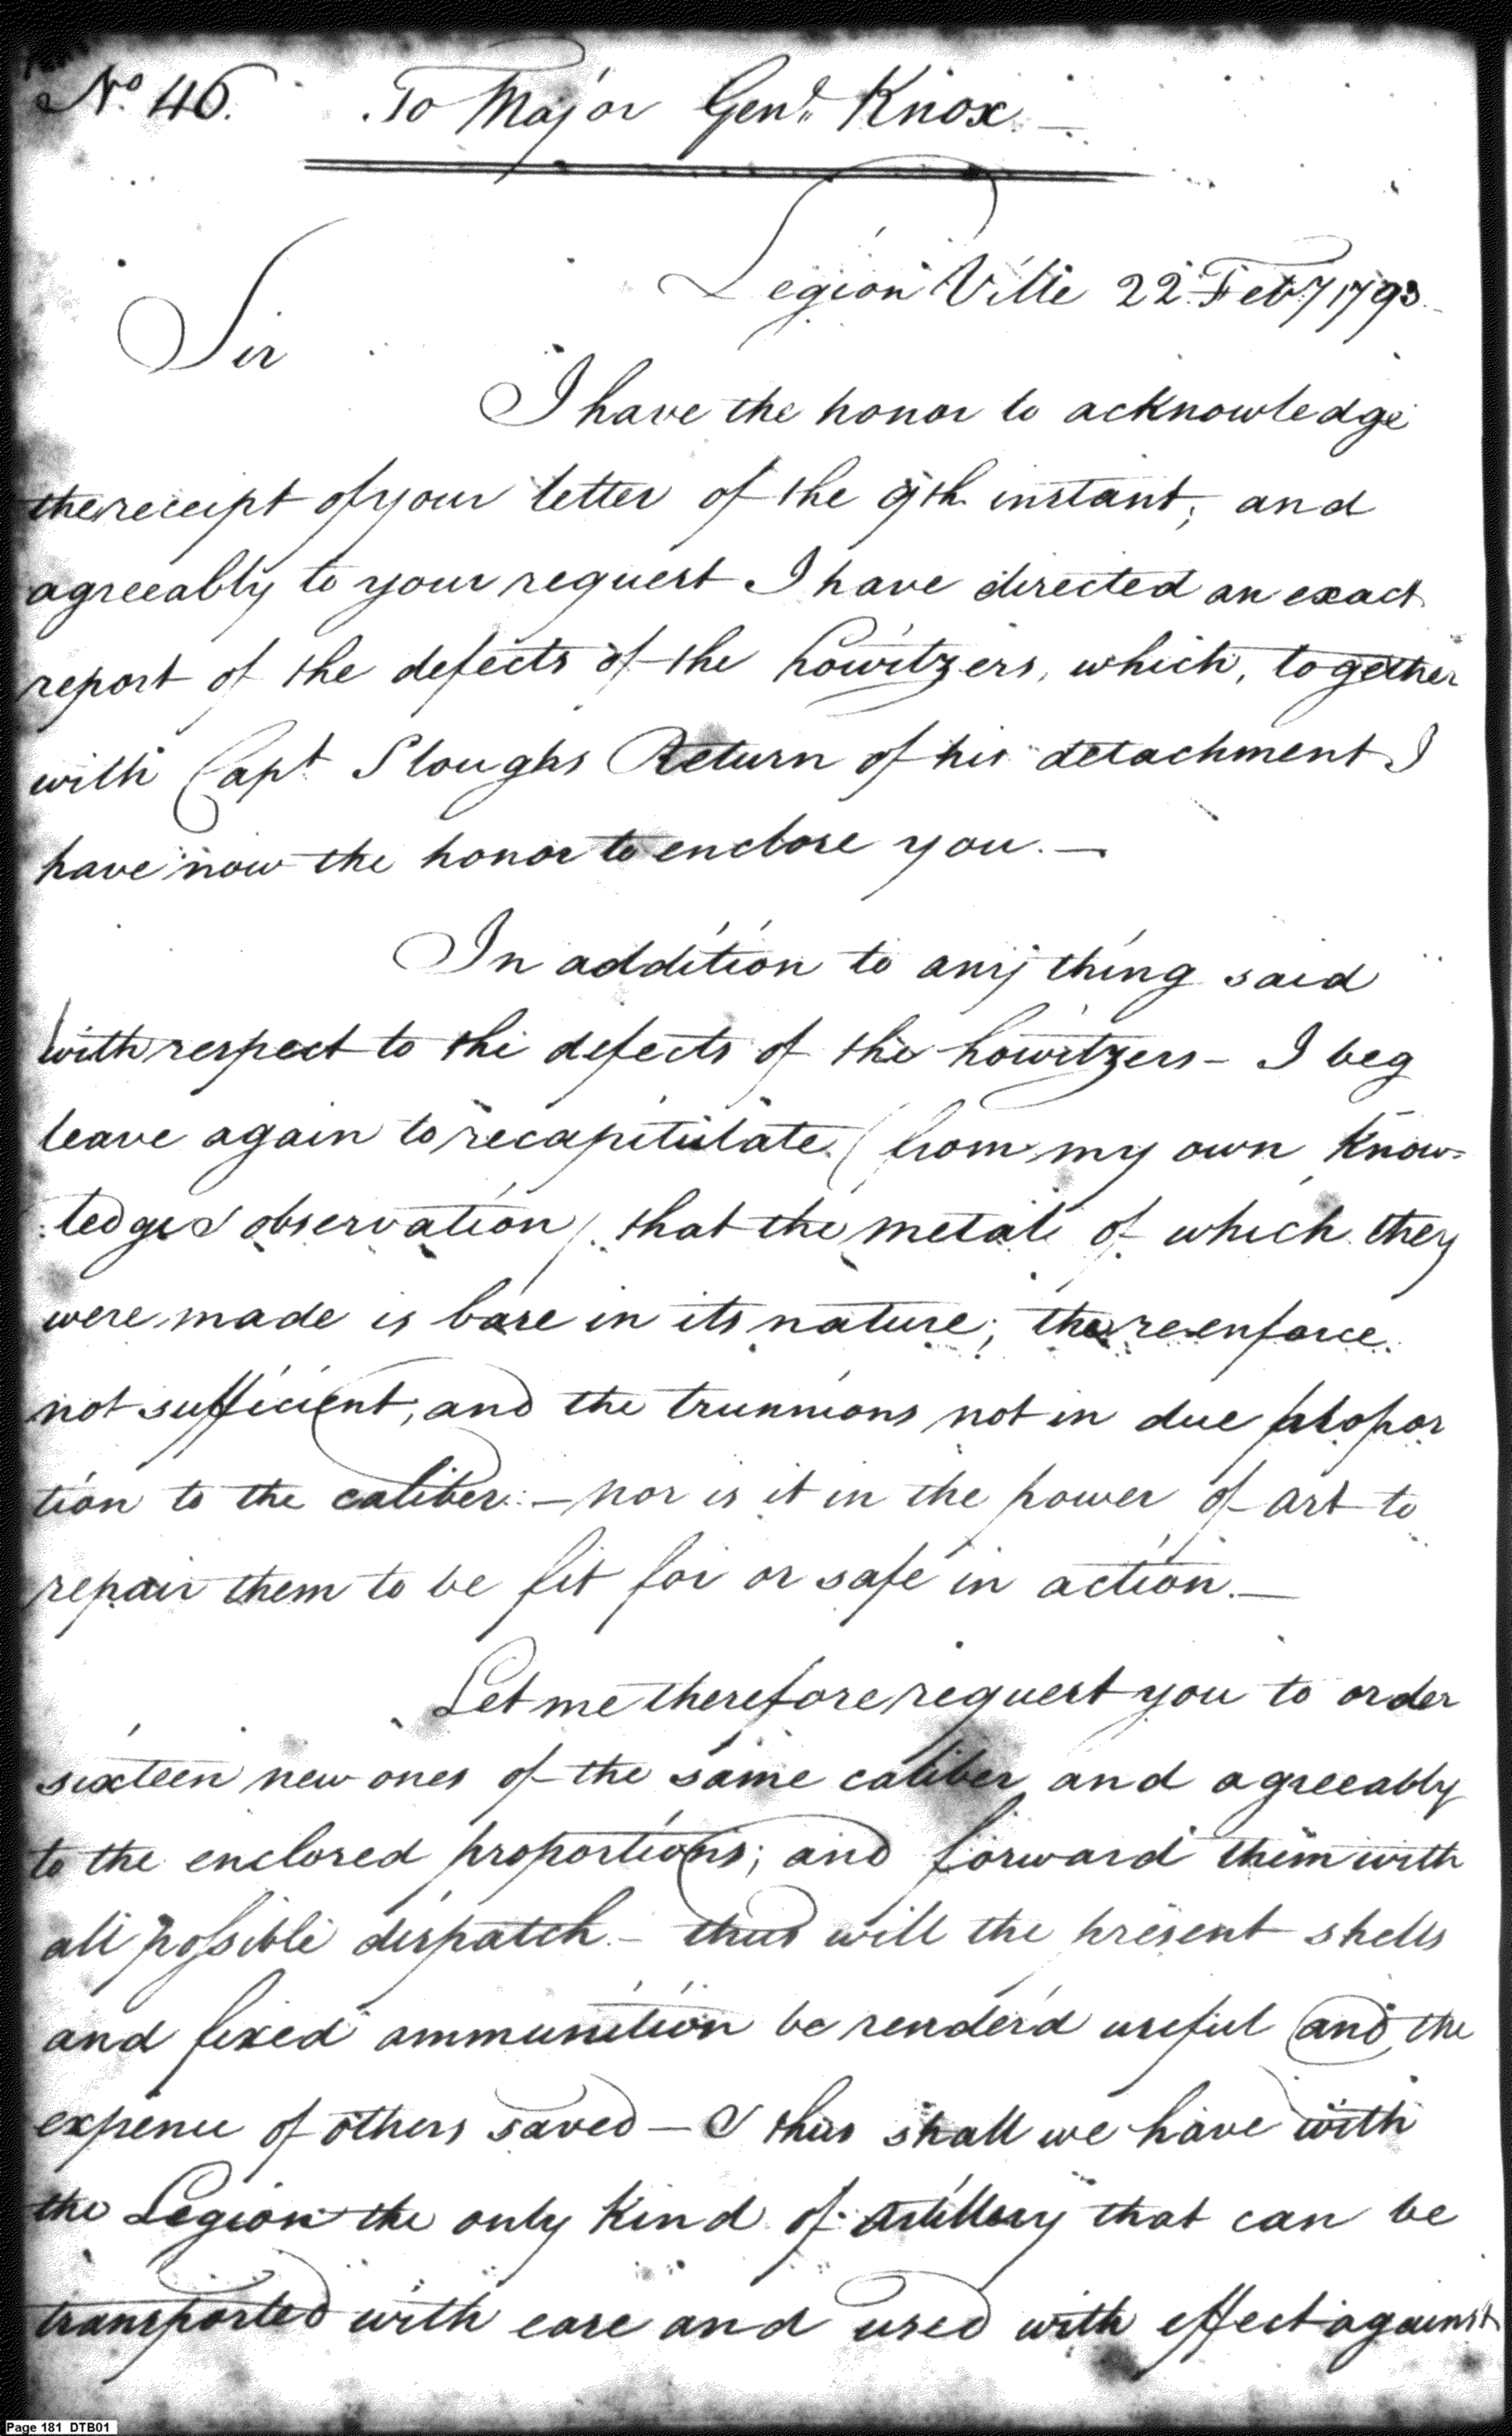 No. 46. To Major Genl. Knox.—
Legion Ville 22. Feby 1793.
Sir
I have the honor to acknowledge
the receipt of your letter of the 9th. instant, and
agreeably to your request I have directed an exact
report of the defects of the howitzers, which, together
with Capt Sloughs Return of his detachment I
have now the honor to enclose you.—
In addition to any thing said
with respect to the defects of the howitzers— I beg
leave again to recapitulate (from my own Know-
:ledge & observation) that the metal of which they
were made is base in its nature; the reenforce
not sufficient, and the trunnions not in due propor
tion to the caliber:— nor is it in the power of art to
repair them to be fit for or safe in action.—
Let me therefore request you to order
sixteen new ones of the same caliber and agreeably
to the enclosed proportions; and forward them with
all possible dispatch.— thus will the present shells
and fixed ammunition be render'd useful and the
expence of others saved— & thus shall we have with
the Legion the only Kind of Artillery that can be
transported with ease and used with effect against
Page 181 DTB01